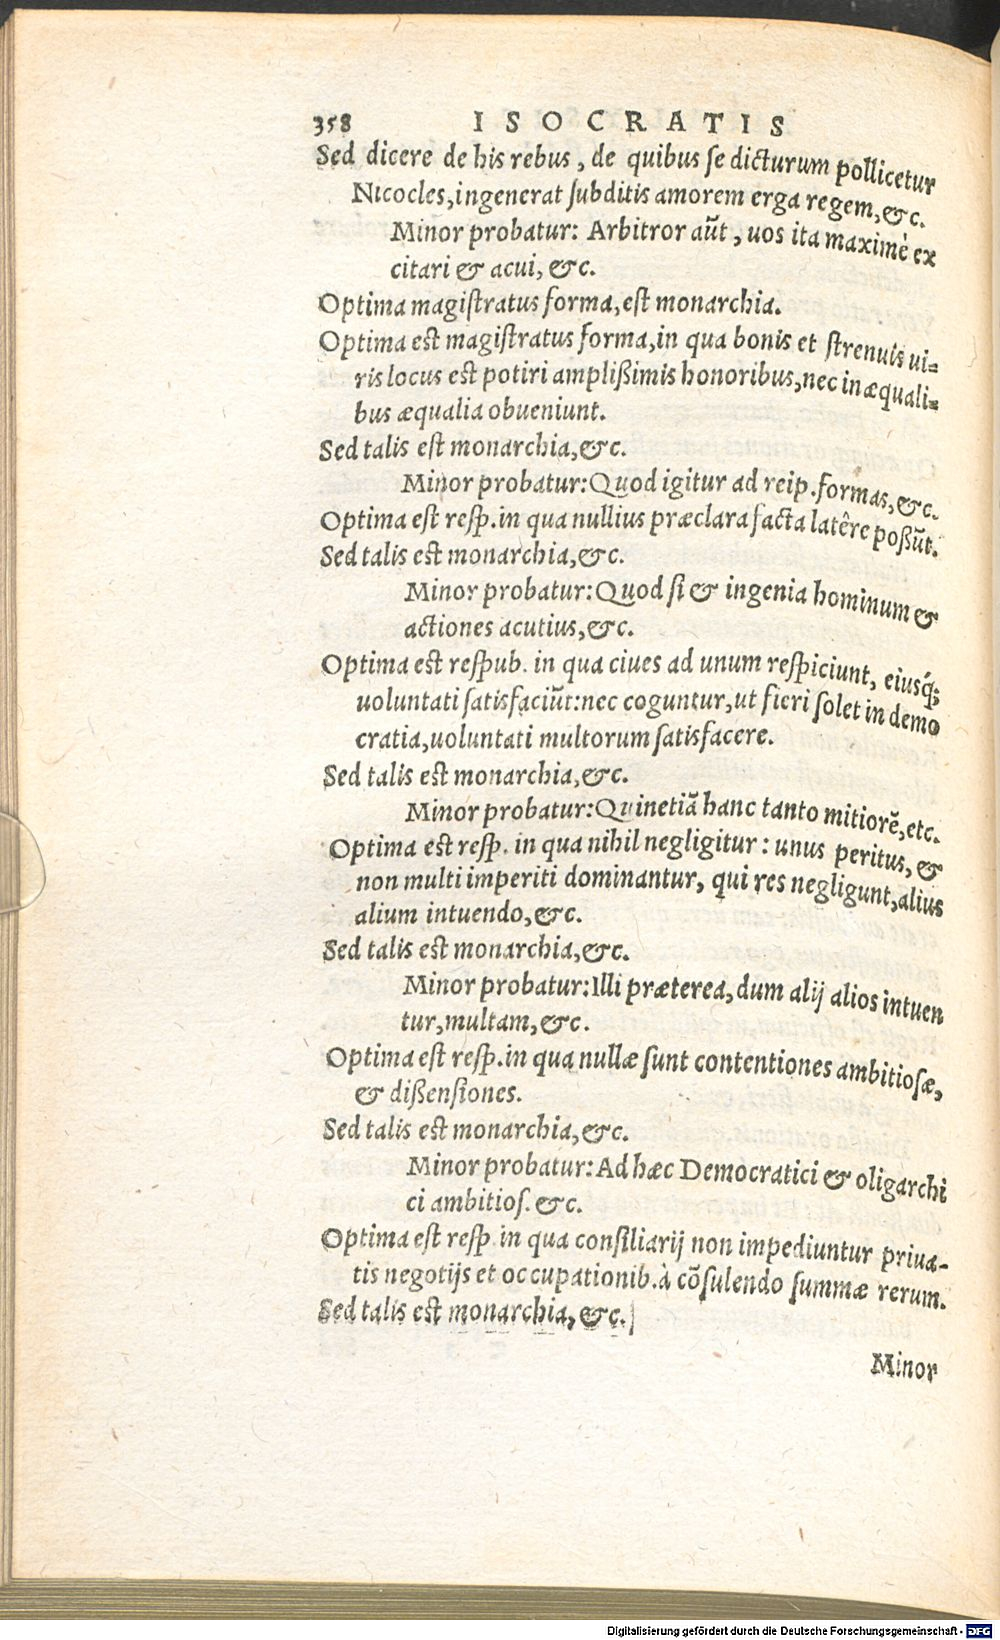 358 ISOCRATIS
Sed dicere de his rebus, de quibus se dicturum pollicetur
Nicocles, ingenerat subditis amorem erga regem, &c.
Minor probatur: Arbitror aūt, uos ita maximè ex
citari & acui, &c.
Optima magistratus forma, est monarchia.
Optima est magistratus forma, in qua bonis et strenuis ui=
ris locus est potiri amplißimis honoribus, nec inæquali=
bus æqualia obueniunt.
Sed talis est monarchia, &c.
Minor probatur: Quod igitur ad reip. formas, &c.
Optima est resp. in qua nullius præclara facta latêre poßūt.
Sed talis est monarchia, &c.
Minor probatur: Quod si & ingenia hominum &
actiones acutius, &c.
Optima est respub. in qua ciues ad unum respiciunt, eiusq́;
uoluntati satisfaciūt: nec coguntur, ut fieri solet in demo
cratia, uoluntati multorum satisfacere.
Sed talis est monarchia, &c.
Minor probatur: Quinetiā hanc tanto mitiorē, etc.
Optima est resp. in qua nihil negligitur: unus peritus, &
non multi imperiti dominantur, qui res negligunt, alius
alium intuendo, &c.
Sed talis est monarchia, &c.
Minor probatur: Illi præterea, dum alij alios intuen
tur, multam, &c.
Optima est resp. in qua nullæ sunt contentiones ambitiosæ,
& dißensiones.
Sed talis est monarchia, &c.
Minor probatur: Ad hæc Democratici & oligarchi
ci ambitios. &c.
Optima est resp. in qua consiliarij non impediuntur priua-
tis negotijs et occupationib. à cōsulendo summæ rerum.
Sed talis est monarchia, &c.
Minor
Digitalisierung gefördert durch die Deutsche Forschungsgemeinschaft - DFG